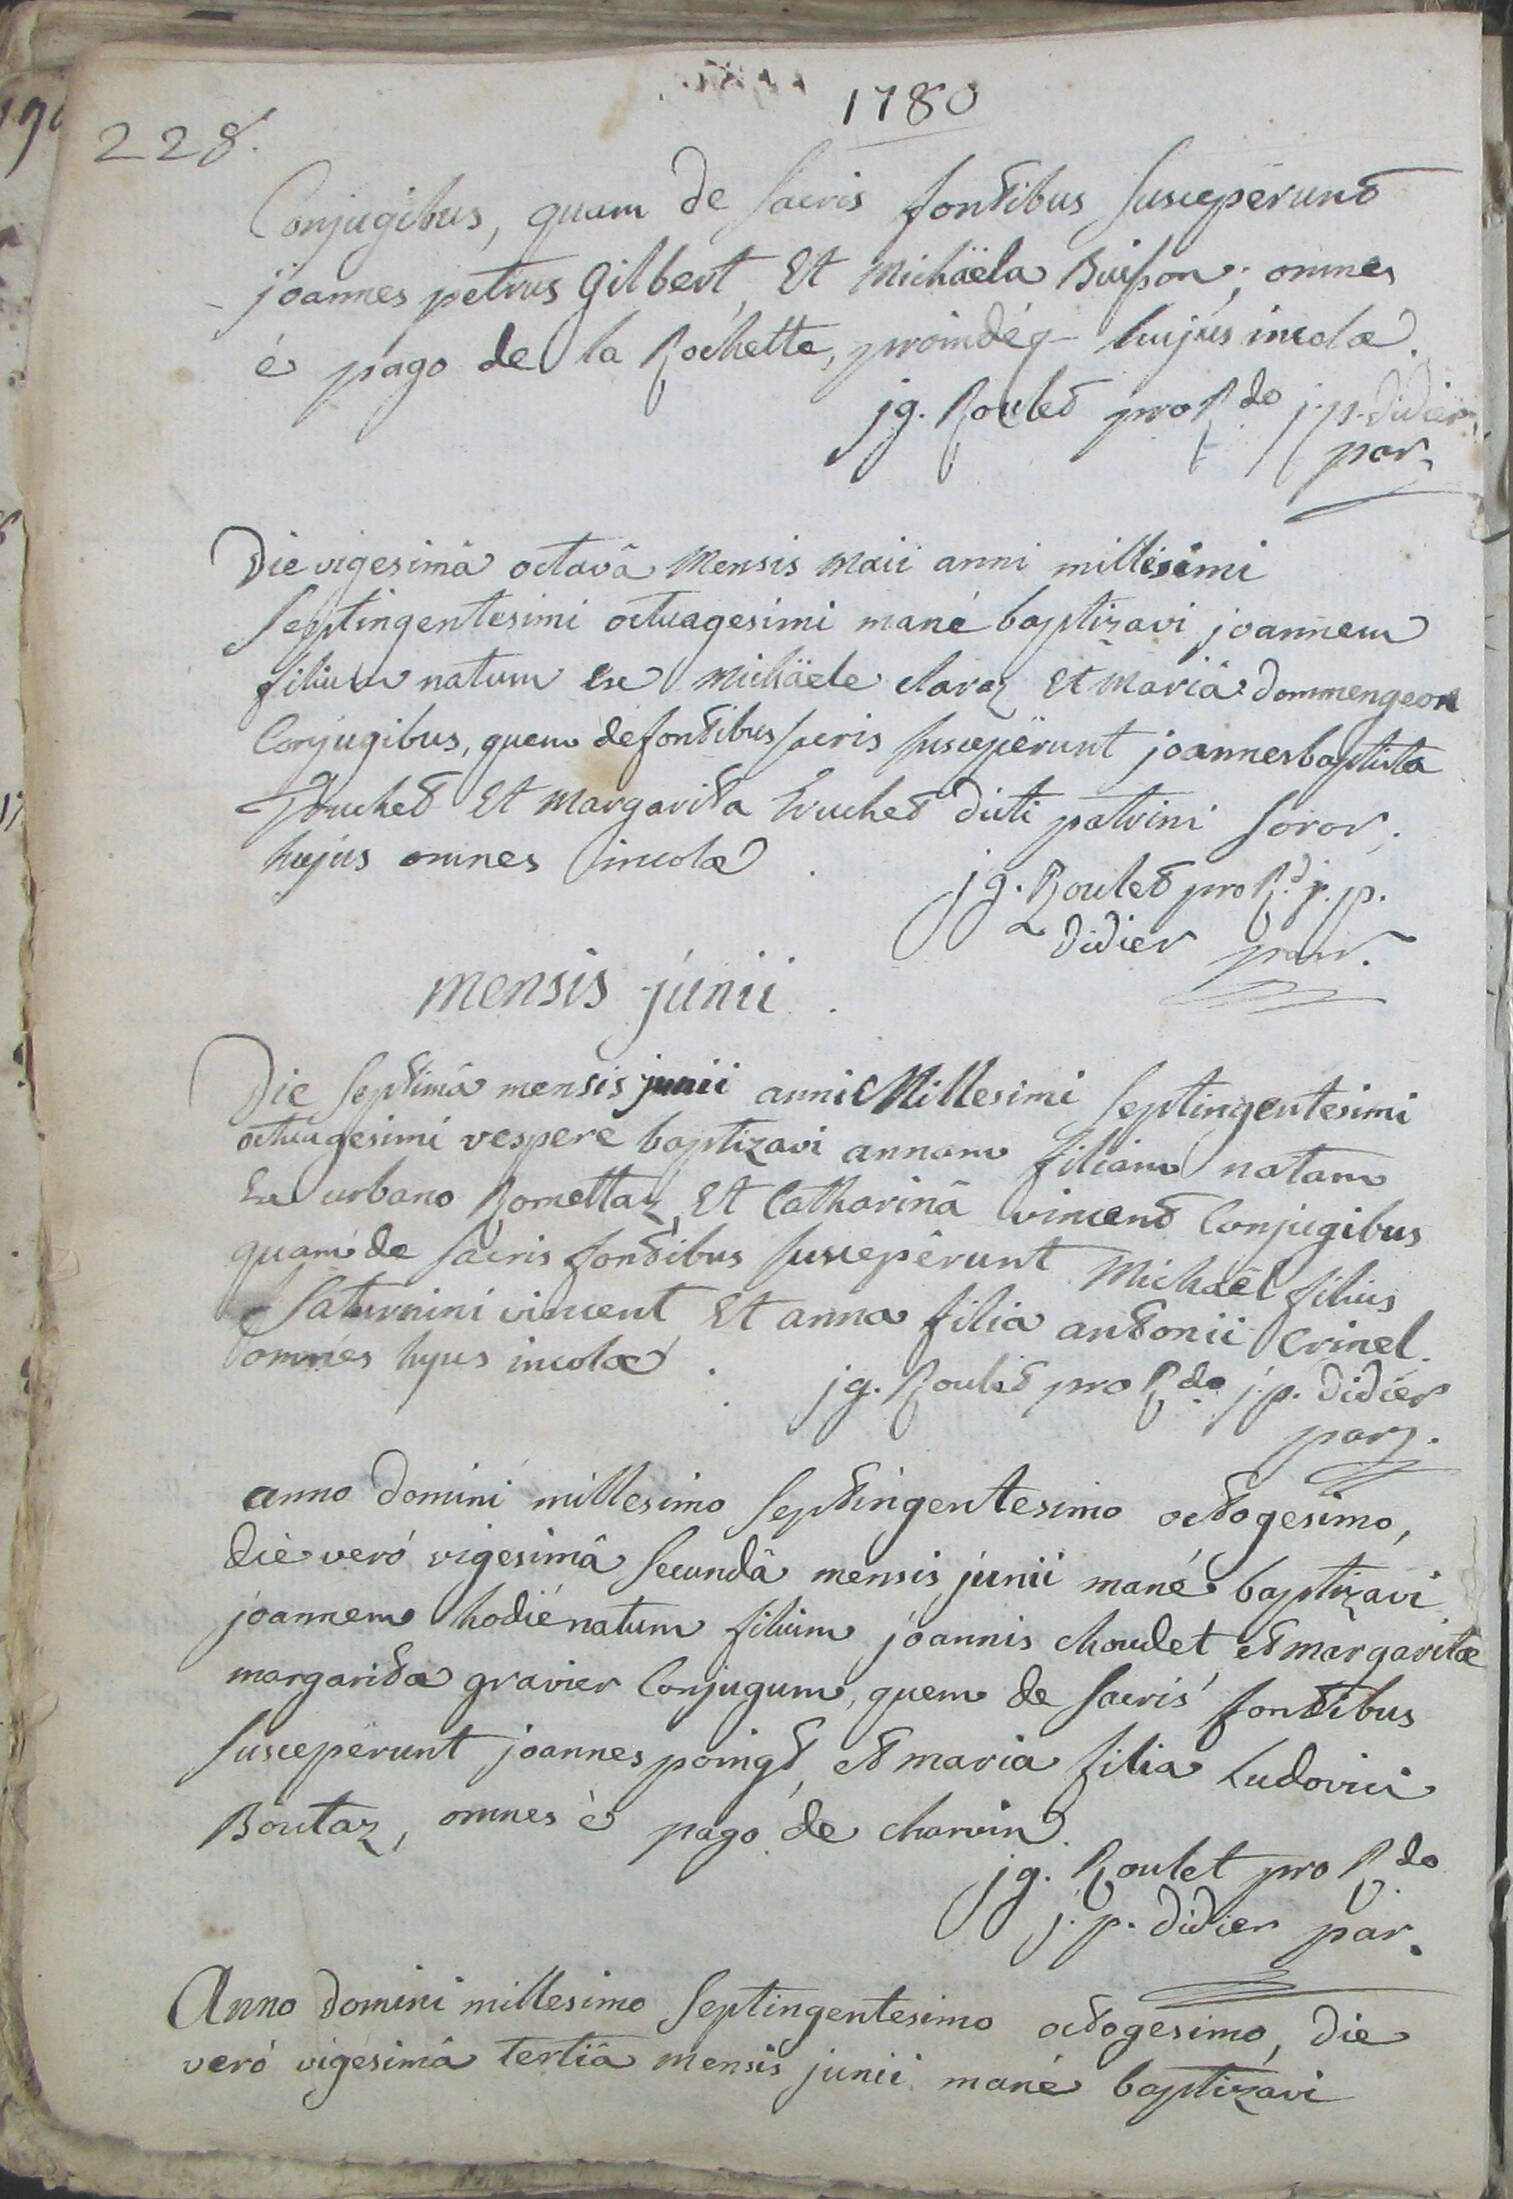 1780
228.
Conjugibus, quam de sacris fontibus susceperunt
joannes petrus Gilbert, Et Michäela Buisson; omnes
é pago de la Rochette, proindéq- hujús incolæ.
jg. Roulet pro R.do j. p. didier
par.
Die vigesimâ octavâ Mensis Maii anni millesimi
septingentesimi octuagesimi mané baptizavi joannem
filium natum Ex Michäele claraz Et Mariâ dommengeon
Conjugibus, quem de fontibus sacris susceperunt joannes baptista
Truchet Et Margarita Truchet dicti patrini soror,
hujus omnes incolæ.
jg. Roulet pro R.d j. p.
didier par.
mensis júnii.
Die septimâ mensis junii anni Millesimi septingentesimi
octuagesimi vespere baptizavi annam filiam natam
Ex urbano Romettaz, Et Catharinâ vincent Conjugibus
quam de sacris fontibus suscepêrunt Michaël filius
Saturnini vincent, Et anna filia antonii Crinel.
omnés hujus incolæ.
jg. Roulet pro R.do j. p. didier
par.
anno domini millesimo septingentesimo octogesimo,
die veró vigesimâ secundâ mensis júnii mané baptizavi
joannem hodié natum filium joannis choudet et margaritæ
margaritæ gravier Conjugum, quem de sacris fontibus
susceperunt joannes poingt, et maria filia Ludovici
Boutaz, omnes è pago de charvin.
jg. Roulet pro R.do
j. p. didier par.
Anno domini millesimo septingentesimo octogesimo, die
veró vigesimâ tertiâ mensis junii mané baptizavi